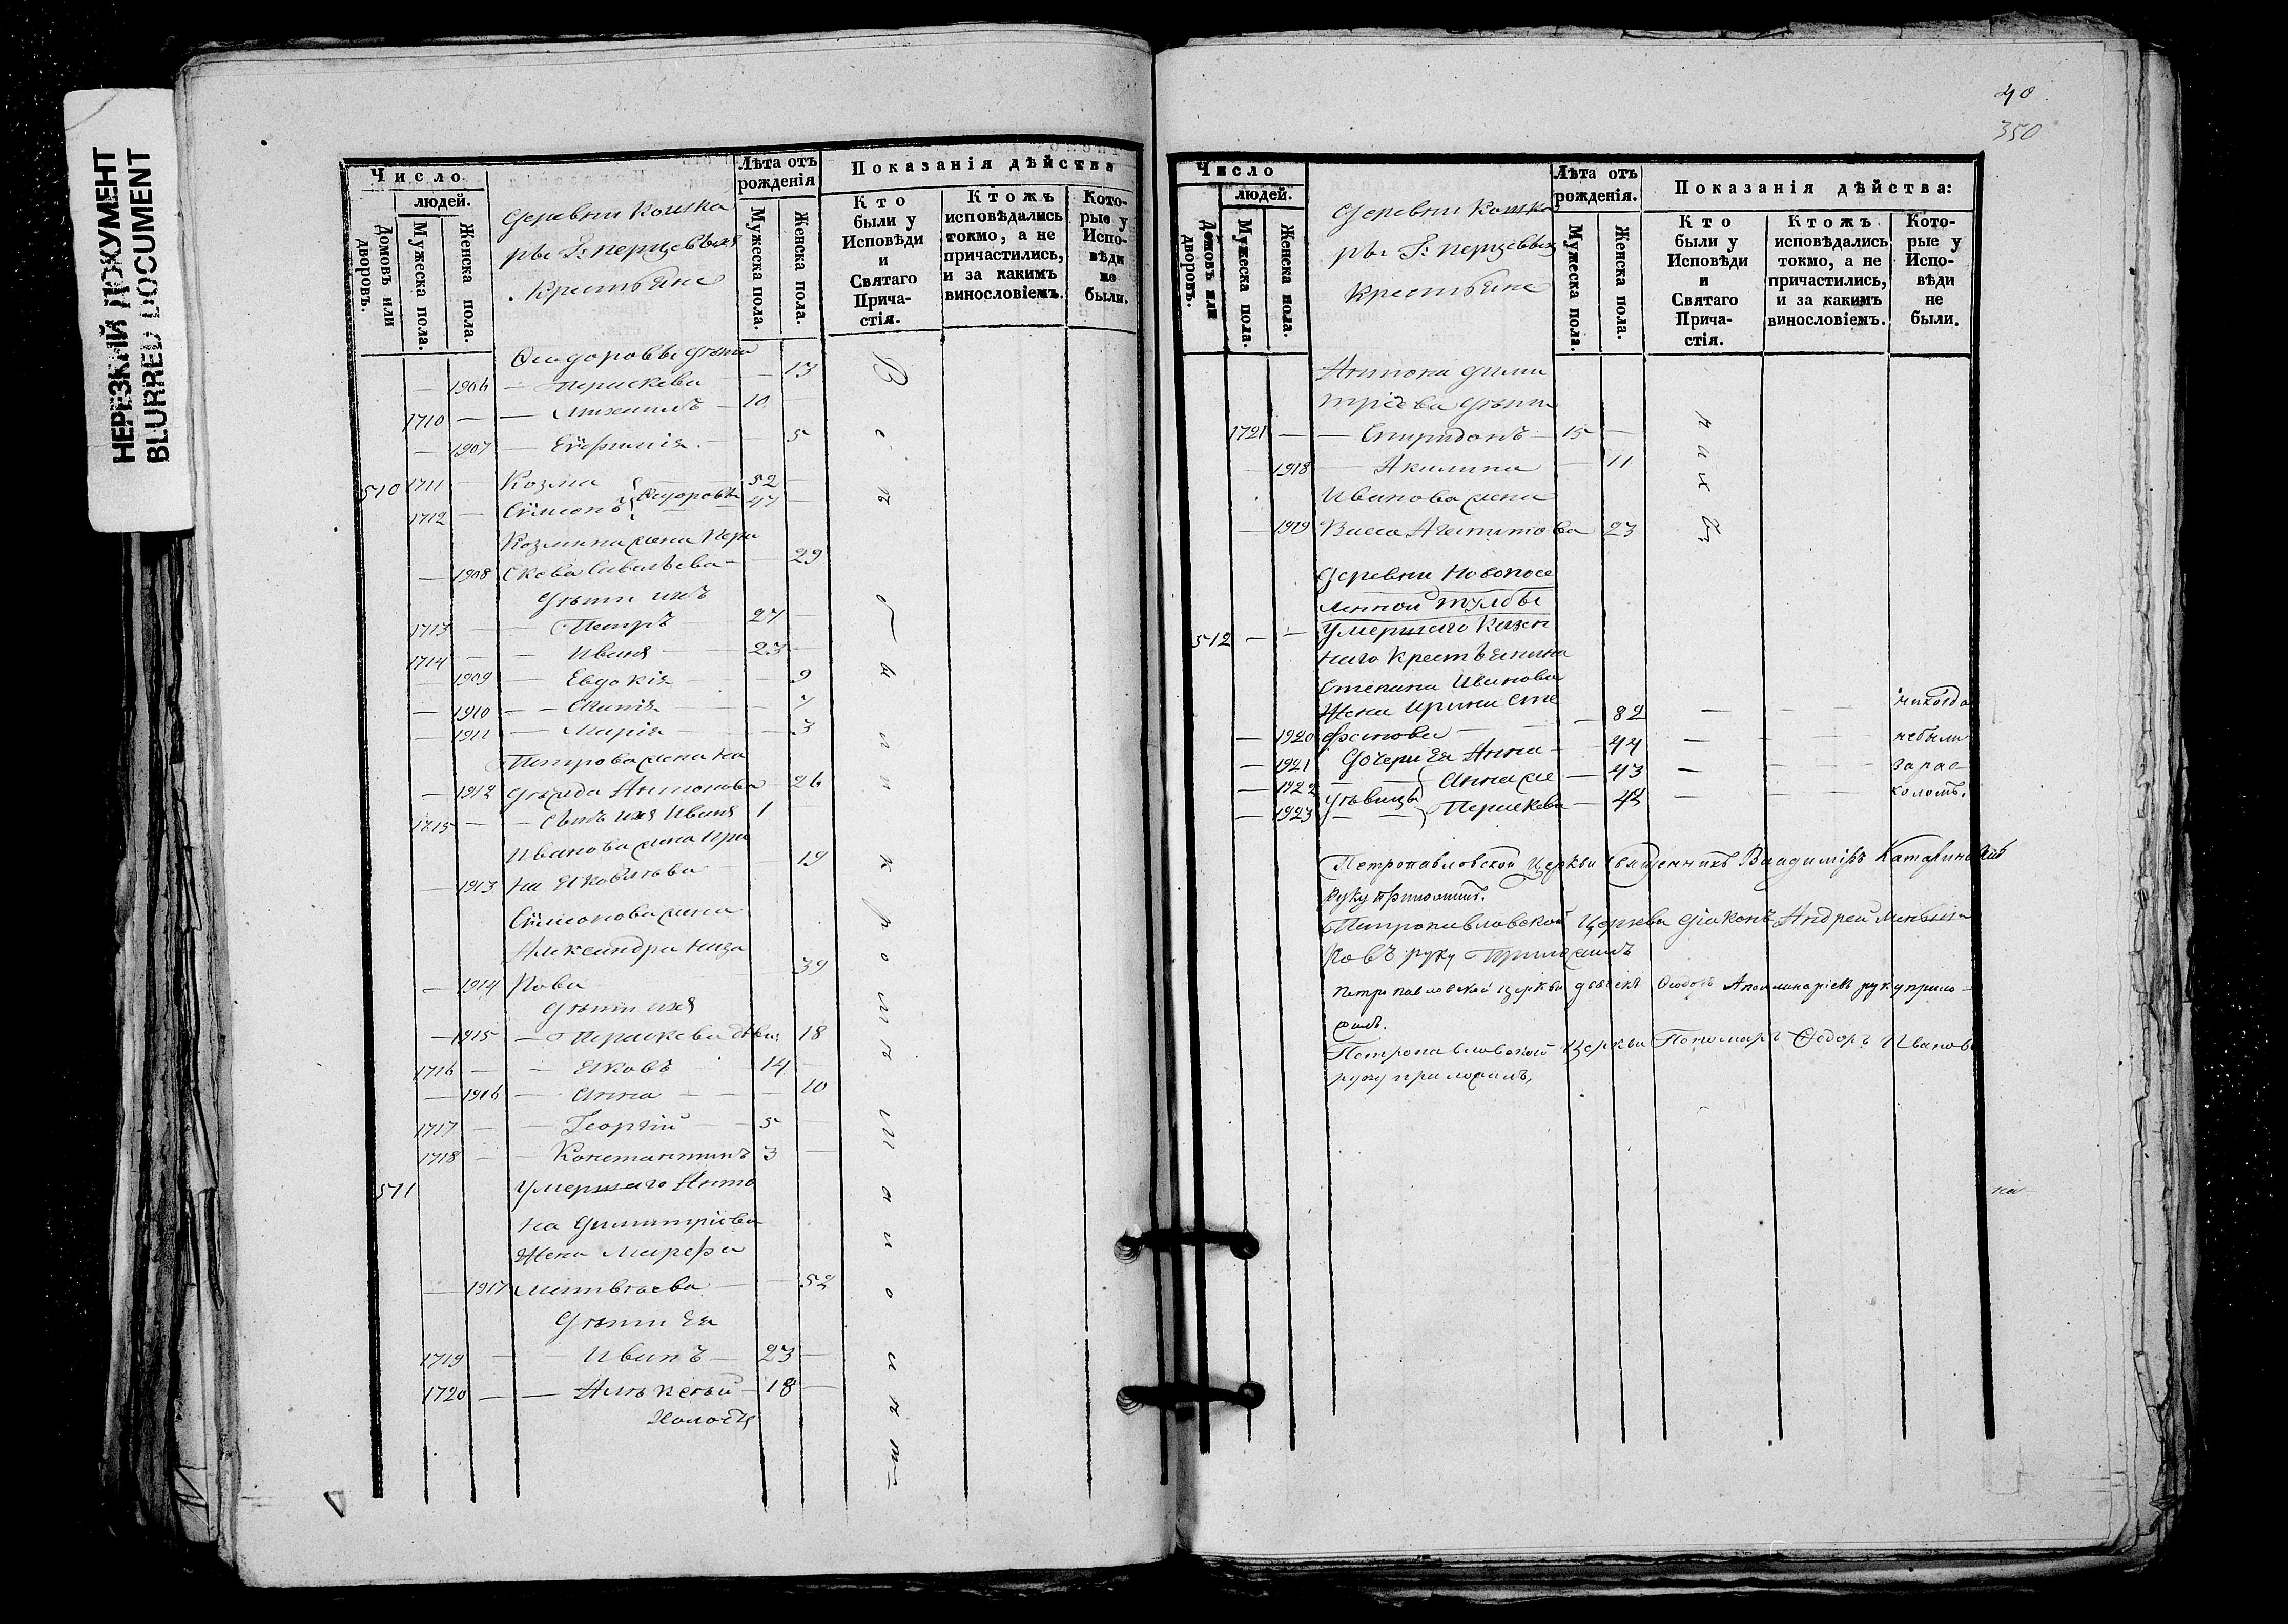 НЕРЕЗКИЙ ДОКУМЕНТ
BLURRED DOCUMENT
Число
людей.
Домовъ или дворовъ.
Мужеска пола.
Женска пола.
Деревни Кошка
ры Г: перцевыхъ
Крестьяне
Лѣта отъ рожденія
Мужеска пола.
Женска пола.
Показанія дѣйства
Кто были у Исповѣди и Святаго Причастія.
Ктожъ исповѣдались токмо, а не причастились, и за какимъ винословіемъ.
Которые у Исповѣди не были.
Ѳеодоровы дѣти
— 1906 — Параскева — 13
1710 — — Михаилъ — 10 —
— 1907 — Евфимія — 5
510 1711 — Козма 52
1712 — Симеонъ } Ѳедоровы 47 —
Козмина жена Пара
— 1908 скева Савельева — 29
Дѣти ихъ
1713 — — Петръ 27 —
1714 — — Иванъ 23 —
— 1909 — Евдокія — 9
— 1910 — — 7
— 1911 — Марія — 3
Петрова жена На
— 1912 дежда Антонова — 26
1715 — — Сынъ ихъ Иванъ 1 —
Иванова жена Ири
— 1913 на Яковлева — 19
Симеонова жена
Александра Наза
— 1914 рова 39
Дѣти ихъ
— 1915 — Параскева дѣви: 18
1716 — — Яковъ 14 —
— 1916 — Анна — 10
1717 — — Георгій 5 —
1718 — — Константинъ 3 —
511 Умершаго Анто
на Димитріева
Жена Марфа
— 1917 Матвѣева — 52
Дѣти Ея
1719 — Иванъ — 23 —
1720 — — Алексѣй — 18 —
Холосты
40
350
Число
людей.
Домовъ или дворовъ.
Мужеска пола.
Женска пола.
Деревни Кошка
ры Г: перцевыхъ
Крестьяне
Лѣта отъ рожденія.
Мужеска пола.
Женска пола.
Показанія дѣйства:
Кто были у Исповѣди и Святаго Причастія.
Ктожъ исповѣдались токмо, а не причастились, и за какимъ винословіемъ.
Которые у Исповѣди не были.
Антона Дими
тріева Дѣти
1721 — — Спиридонъ — 15 —
— 1918 — Акилина — 11
Иванова жена
— 1919 Васса Агапитова 23
Деревни Новопосе
ленной Тулбы
512 — — Умершаго Казен
наго крестьянина
Степана Иванова
Жена Ирина Сте
— 1920 фанова — 82 — — — никогда
— 1921 Дочери Ея Анна — 44 — — — небыли
— 1922 Дѣвицы { Анна же — 43 — — — зарас-
— 1923 — — Параскева — 42 — — — коломъ.
Петропавловской Церкви Священникъ Владиміръ
руку приложилъ.
Петропавловской Церкви діаконъ Андрей Меньши
ковъ руку приложилъ
Петропавловской церкви дьячекъ Ѳеодоръ Аполинаріевъ руку прило-
жилъ.
Петропавловской Церкви Пономарь Ѳедоръ Ивановъ
руку приложилъ,